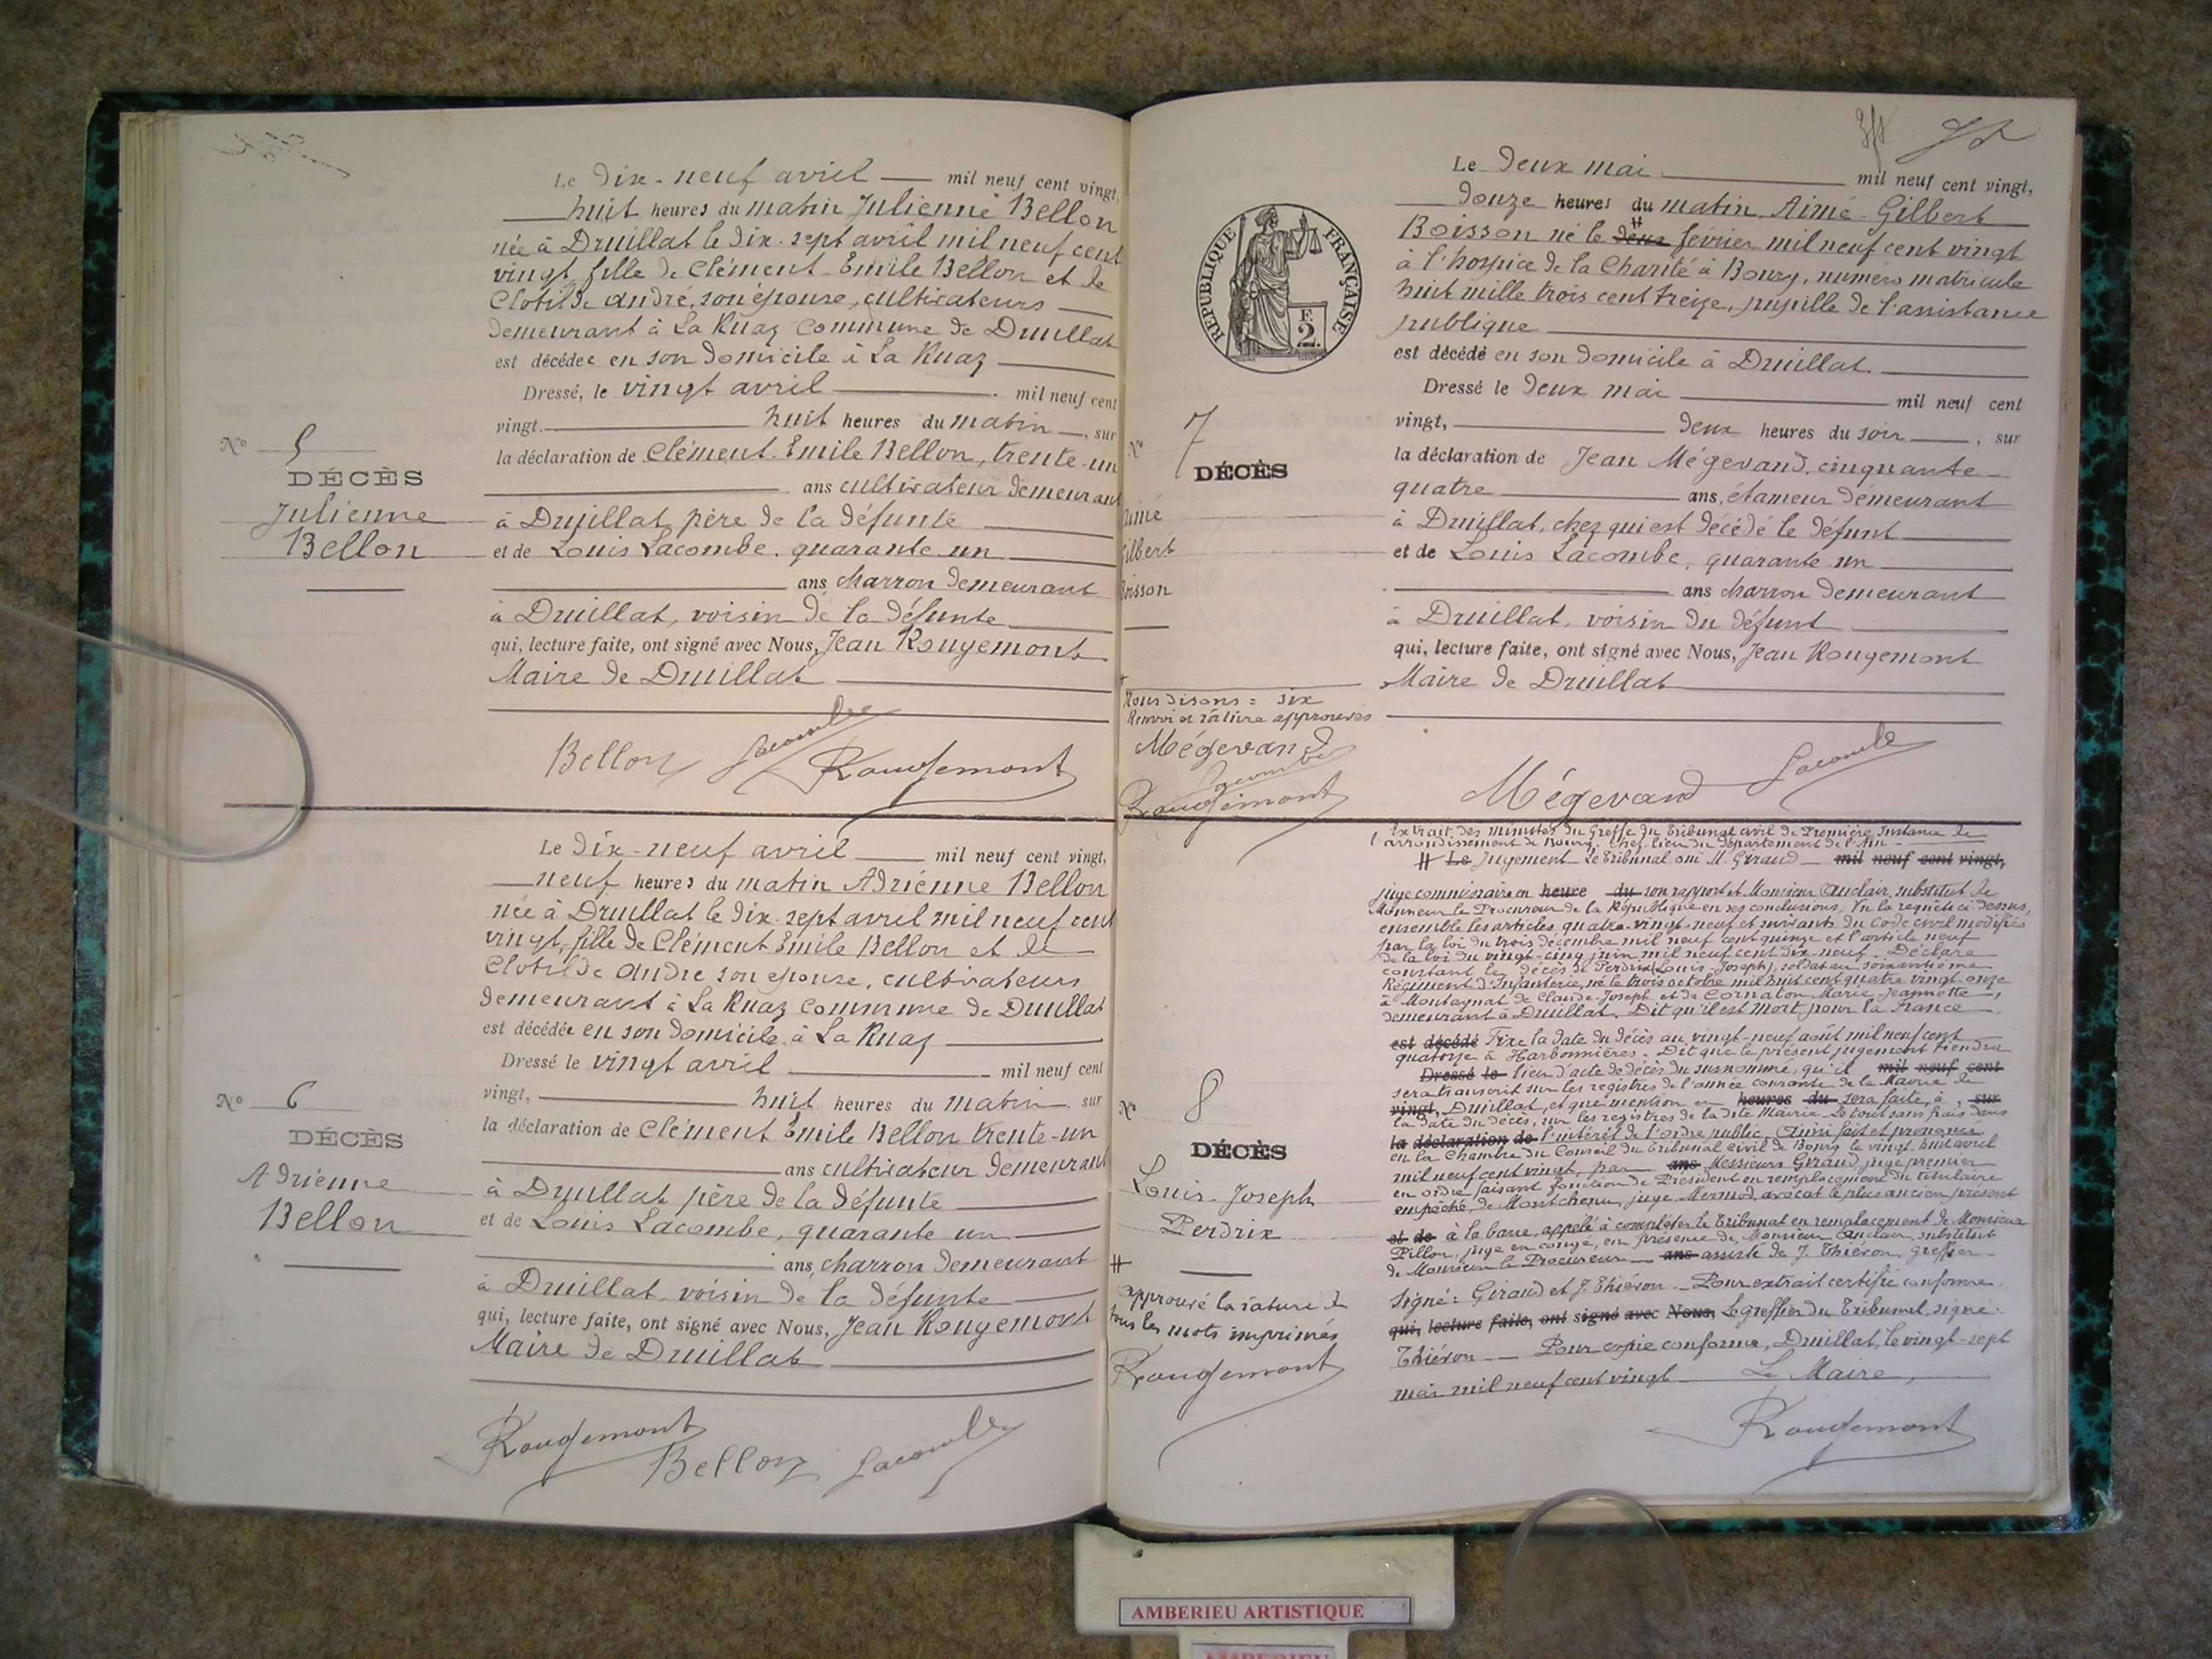 Le dix-neuf avril mil neuf cent vingt,
huit heures du matin Julienne Bellon
née à Druillat le dix-sept avril mil neuf cent
vingt, fille de Clément-Emile Bellon et de
Clotilde André, son épouse, cultivateurs
demeurant à La Ruaz commune de Druillat
est décédée en son domicile à La Ruaz
Dressé, le vingt avril mil neuf cent
vingt. huit heures du matin, sur
la déclaration de Clément-Emile Bellon, trente-un
ans cultivateur demeurant
à Druillat, père de la défunte
et de Louis Lacombe, quarante-un
ans charron demeurant
à Druillat, voisin de la défunte
qui, lecture faite, ont signé avec Nous, Jean Rougemont
Maire de Druillat
N° 5
DÉCÈS
Julienne
Bellon
Bellon Lacombe Rougemont
Le dix-neuf avril mil neuf cent vingt,
neuf heures du matin Adrienne Bellon
née à Druillat le dix-sept avril mil neuf cent
vingt, fille de Clément Emile Bellon et de
Clotilde André son épouse, cultivateurs
demeurant à La Ruaz commune de Druillat
est décédée en son domicile à La Ruaz
Dressé le vingt avril mil neuf cent
vingt, huit heures du matin, sur
la déclaration de Clément Emile Bellon trente-un
ans cultivateur demeurant
à Druillat père de la défunte
et de Louis Lacombe, quarante un
ans, charron demeurant
à Druillat voisin de la défunte
qui, lecture faite, ont signé avec Nous, Jean Rougemont
Maire de Druillat
N° 6
DÉCÈS
Adrienne
Bellon
Rougemont
Bellon Lacombe
Le deux mai mil neuf cent vingt,
douze heures du matin, Aimé-Gilbert
#
Boisson né le deux février mil neuf cent vingt
à l'hospice de la Charité à Bourg, numéro matricule
huit mille trois cent treize, pupille de l'assistance
publique
est décédé en son domicile à Druillat.
Dressé le deux mai mil neuf cent
vingt, deux heures du soir, sur
la déclaration de Jean Mégevand, cinquante-
quatre ans, étameur demeurant
à Druillat, chez qui est décédé le défunt
et de Louis Lacombe, quarante un
ans charron demeurant
à Druillat, voisin du défunt
qui, lecture faite, ont signé avec Nous, Jean Rougemont
Maire de Druillat
RÉPUBLIQUE FRANÇAISE
F.
2.
N° 7
DÉCÈS
Aimé
Gilbert
Boisson
Nous disons = six
Renvoi et rature approuvés
Mégevand
Lacombe
Rougemont
Mégevand Lacombe
Extrait des minutes du Greffe du Tribunal civil de Première Instance de
l'arrondissement de Bourg, chef-lieu du département de l'Ain
# Le Jugement Le Tribunal oui M. Giraud mil neuf cent vingt,
juge commissaire en heure du son rapport et Monsieur Auclair, substitut de
Monsieur le Procureur de la République en ses conclusions, Vu la requête ci-dessus,
ensemble les articles quatre-vingt-neuf et suivants du Code civil modifiés
par la loi du trois décembre mil neuf cent quinze et l'article neuf
de la loi du vingt-cinq juin mil neuf cent dix-neuf. Déclare
constant le décès de Perdrix (Louis-Joseph), soldat au soixantième
Régiment d'Infanterie, né le trois octobre mil huit cent quatre vingt-onze
à Montagnat de Claude-Joseph et de Cornaton Marie Jeannette,
demeurant à Druillat. Dit qu'il est Mort pour la France
est décédé Fixe la date du décès au vingt-neuf août mil neuf cent
quatorze à Harbonnières. Dit que le présent jugement tiendra
Dressé le lieu d'acte de décès du susnommé, qu'il mil neuf cent
sera transcrit sur les registres de l'année courante de la Mairie de
vingt, Druillat, et que mention en heures du sera faite, à, sur
la date du décès, sur les registres de la dite Mairie. Le tout sans frais dans
la déclaration de l'intérêt de l'ordre public. Ainsi fait et prononcé
en la Chambre du Conseil du Tribunal civil de Bourg le vingt-huit avril
mil neuf cent vingt, par ans Messieurs Giraud, juge premier
en ordre faisant fonction de Président en remplacement du titulaire
empêché, de Montchenu, juge, Mermod, avocat le plus ancien présent
et de à la barre, appelé à compléter le Tribunal en remplacement de Monsieur
Pillon, juge en congé, en présence de Monsieur Auclair, substitut
de Monsieur le Procureur ans assisté de J. Thiéron, greffier
Signé: Giraud et J. Thiéron. Pour extrait certifié conforme.
qui, lecture faite, ont signé avec Nous, Le greffier du Tribunal, signé:
Thiéron Pour copie conforme, Druillat, le vingt-sept
mai mil neuf cent vingt Le Maire,
Rougemont
N° 8
DÉCÈS
Louis-Joseph
Perdrix
#
approuvé la rature de
tous les mots imprimés
Rougemont
AMBERIEU ARTISTIQUE
AMBERIEU